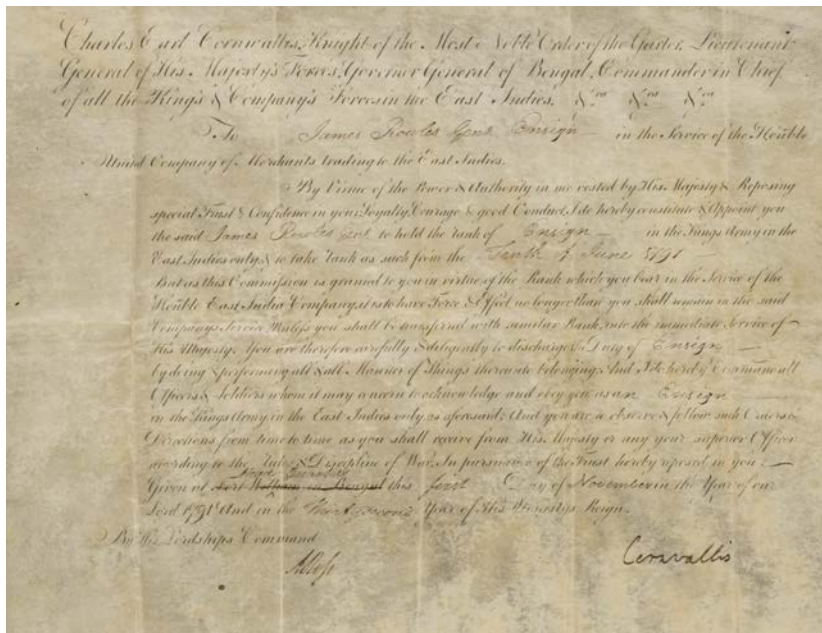 Charles Earl Cornwallis, Knight of the Most Noble Order of the Garter, Lieutenant
General of His Majesty's Forces, Governor General of Bengal, Commander in Chief
of all the King's & Company's Forces in the East Indies, &ca &ca &ca
To James Rowles Gent. Ensign in the Service of the Honble
United Company of Merchants trading to the East Indies.
By Virtue of the Power & Authority in me vested by His Majesty & Reposing
special Trust & Confidence in your Loyalty, Courage & good Conduct, I do hereby constitute & Appoint you
the said James Rowles Gent to hold the rank of Ensign in the Kings Army in the
East Indies only, & to take Rank as such from the Tenth of June 1791
But as this Commission is granted to you in virtue of the Rank which you bear in the Service of the
Honble East India Company, it is to have Force & Effect no longer than you shall remain in the said
Company's Service Unless you shall be transferred with similar Rank into the immediate Service of
His Majesty. You are therefore carefully & diligently to discharge Duty of Ensign
by doing & performing all & all Manner of Things thereunto belonging. And I do hereby Command all
Officers & Soldiers whom it may concern to acknowledge and obey you as an Ensign
in the Kings Army in the East Indies only as aforesaid; And you are to observe & follow such Orders &
Directions from time to time as you shall receive from His Majesty or any your superior Officer
according to the Rules & Discipline of War. In pursuance of the Trust hereby reposed in you.
Given at Fort William in Bengal this first Day of November in the Year of our
Lord 1791 And in the Thirty second Year of His Majesty's Reign.
By His Lordships Command
Cornwallis